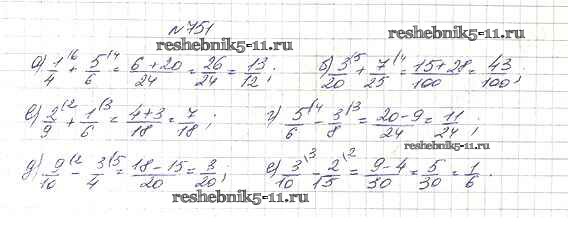 №751
reshebnik5-11.ru
reshebnik5-11.ru
а) 1/4 \6 + 5/6 \4 = (6+20)/24 = 26/24 = 13/12; б) 3/20 \5 + 7/25 \4 = (15+28)/100 = 43/100;
в) 2/9 \2 + 1/6 \3 = (4+3)/18 = 7/18; г) 5/6 \4 - 3/8 \3 = (20-9)/24 = 11/24;
reshebnik5-11.ru
д) 9/10 \2 - 3/4 \5 = (18-15)/20 = 3/20; е) 3/10 \3 - 2/15 \2 = (9-4)/30 = 5/30 = 1/6.
reshebnik5-11.ru